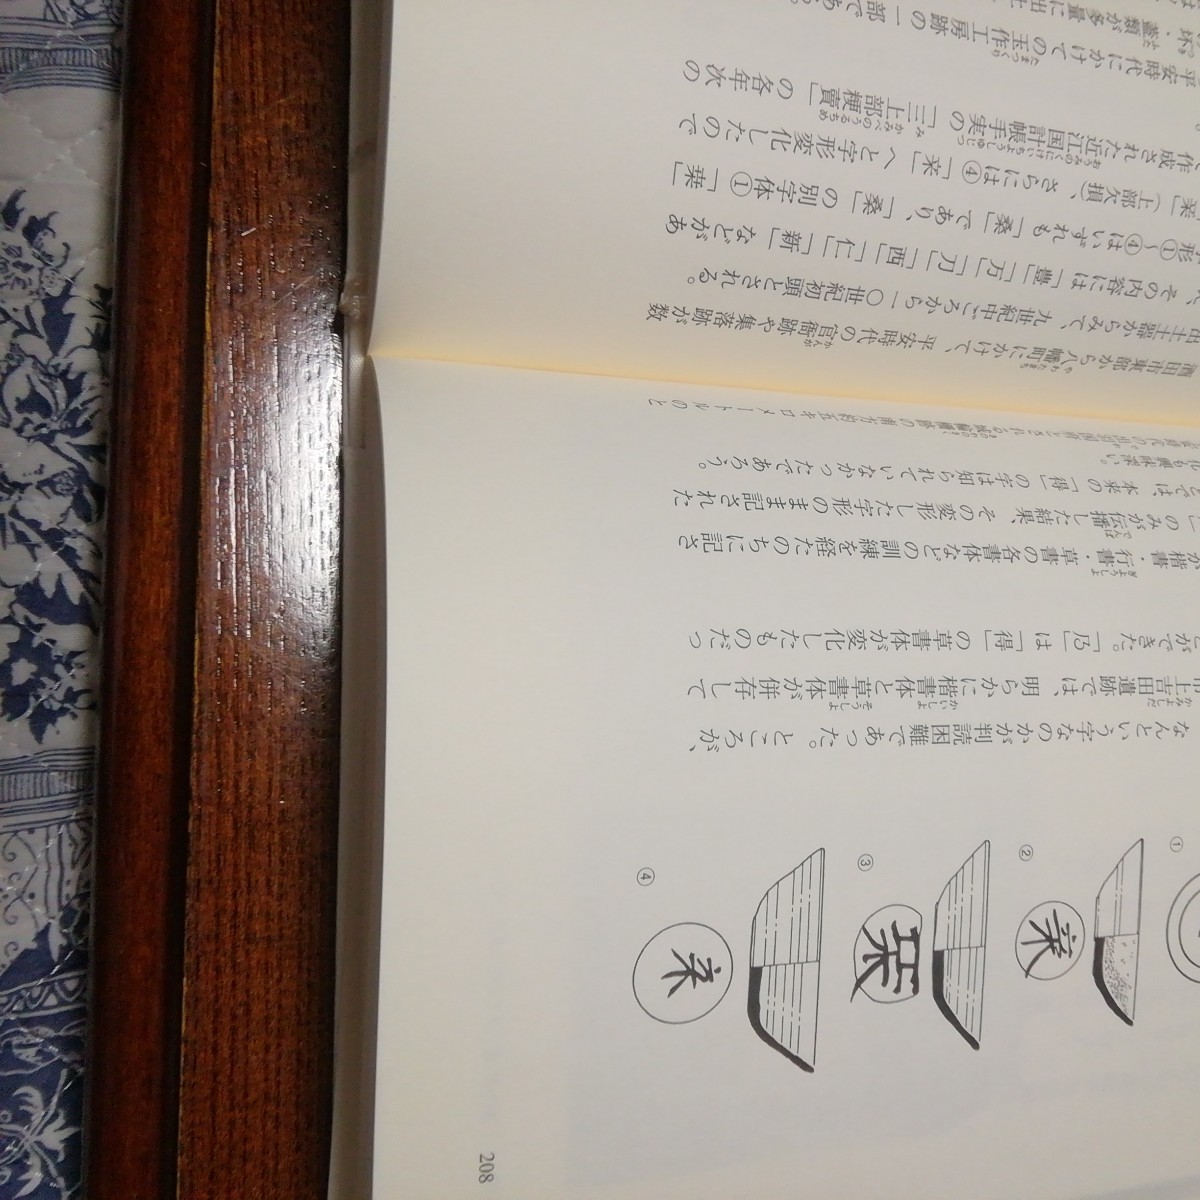 ①
②
③
④
なんという字なのかが判読困難であった。ところが、
上吉田遺跡では、明らかに楷書体と草書体が併存して
ができた。「乃」は「得」の草書体が変化したものだっ
が楷書・行書・草書の各書体などの訓練を経たのちに記さ
このみが伝播した結果、その変形した字形のまま記された
では、本来の「得」の字は知られていなかったであろう。
も興味深い。
の南方約五キロメートルのと
酒田市東部から八幡町にかけて、平安時代の官衙跡や集落跡が数
出土土器からみて、九世紀中ごろから一〇世紀初頭とされる。
、その内容には「豊」「万」「刀」「西」「仁」「新」などがあ
形①～④はいずれも「桑」であり、「桑」の別字体①「枽」
(上部欠損)、さらには④「来」へと字形変化したので
作成された近江国計帳手実の「三上部粳賣」の各年次の
平安時代にかけての玉作工房跡の一部であ
坏・蓋類が多量に出土
208